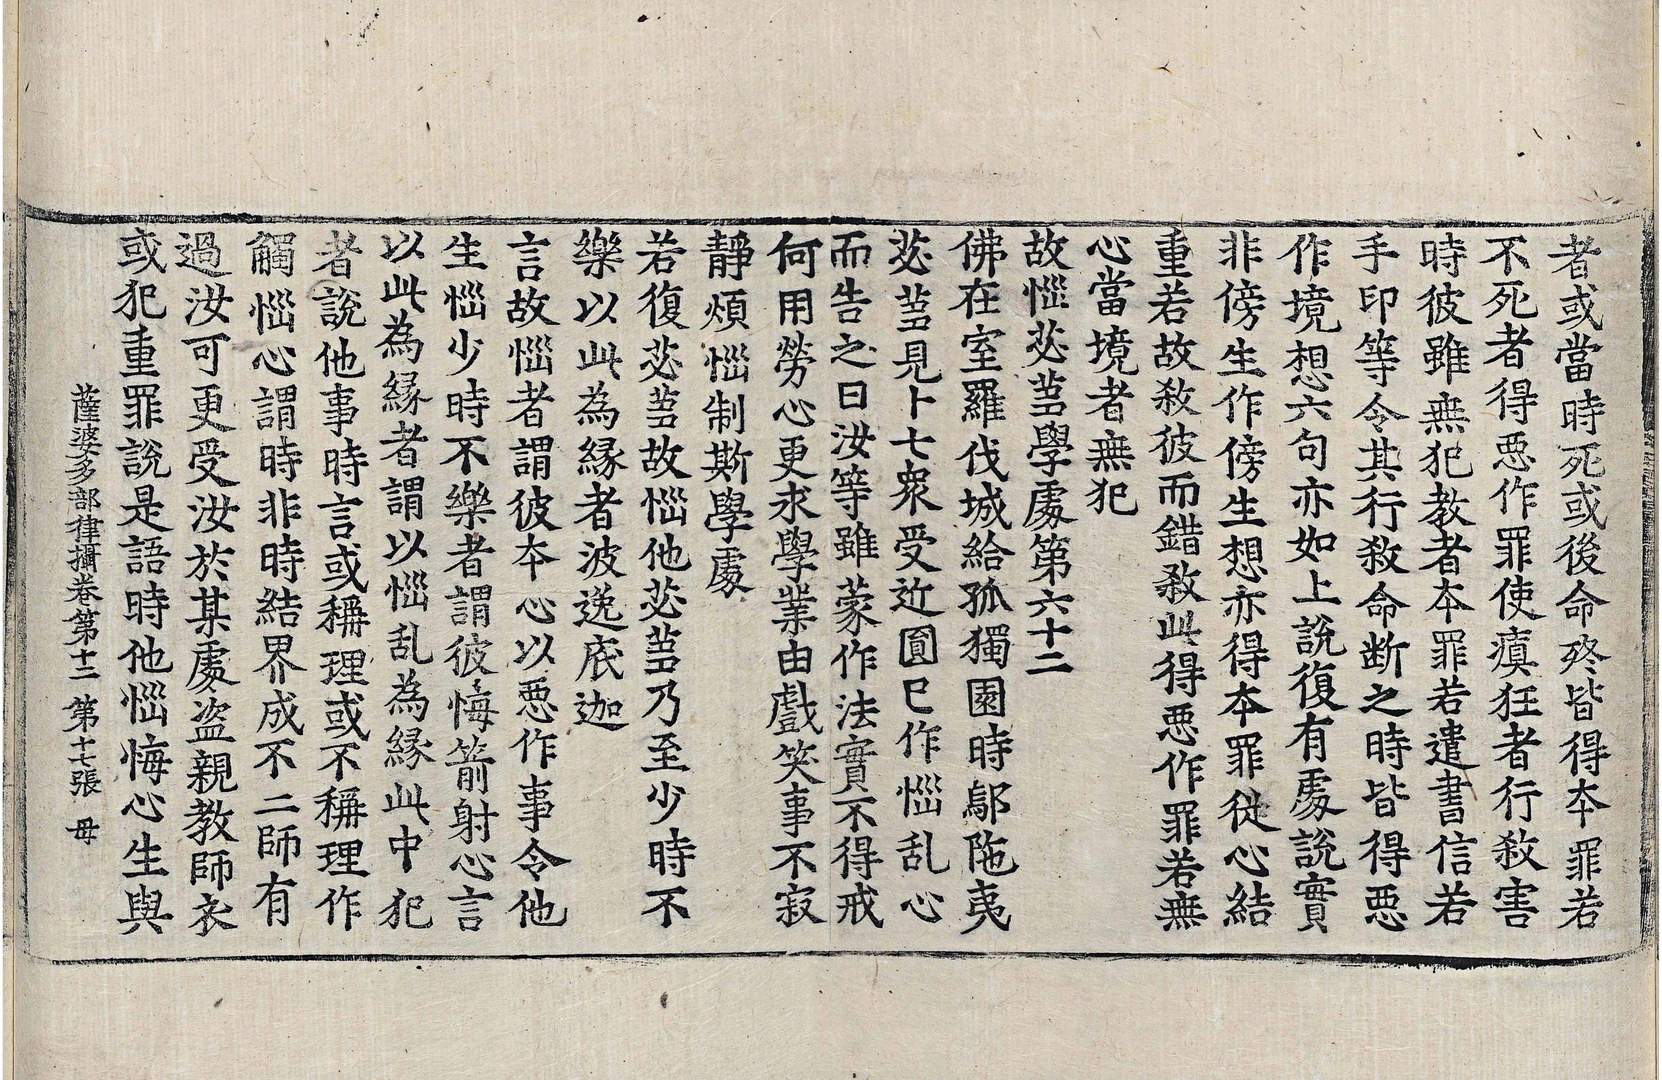 者或當時死或後命終皆得夲罪若
不死者得惡作罪使瘨狂者行敎害
時彼雖無犯教者夲罪若遣書信若
手印等令其行敎命断之時皆得惡
作境想六句亦如上說復有處說實
非傍生作傍生想亦得夲罪従心結
重若故敎彼而錯敎此得惡作罪若無
心當境者無犯
故惱苾蒭學處第六十二
佛在室羅伐城給孤獨園時鄔陁夷
苾蒭見卜七衆受近圓已作惱乱心
而告之曰汝等雖蒙作法實不得戒
何用勞心更求學業由戲笑事不寂
靜煩惱制斯學處
若復苾蒭故惱他苾蒭乃至少時不
樂以此為縁者波逸底迦
言故惱者謂彼夲心以惡作事令他
生惱少時不樂者謂彼悔箭射心言
以此為縁者謂以惱乱為縁此中犯
者說他事時言或稱理或不稱理作
觸惱心謂時非時結界成不二師有
過汝可更受汝於某處盗親教師衣
或犯重罪說是語時他惱悔心生與
薩婆多部律攝卷第十二 第十七張 毋